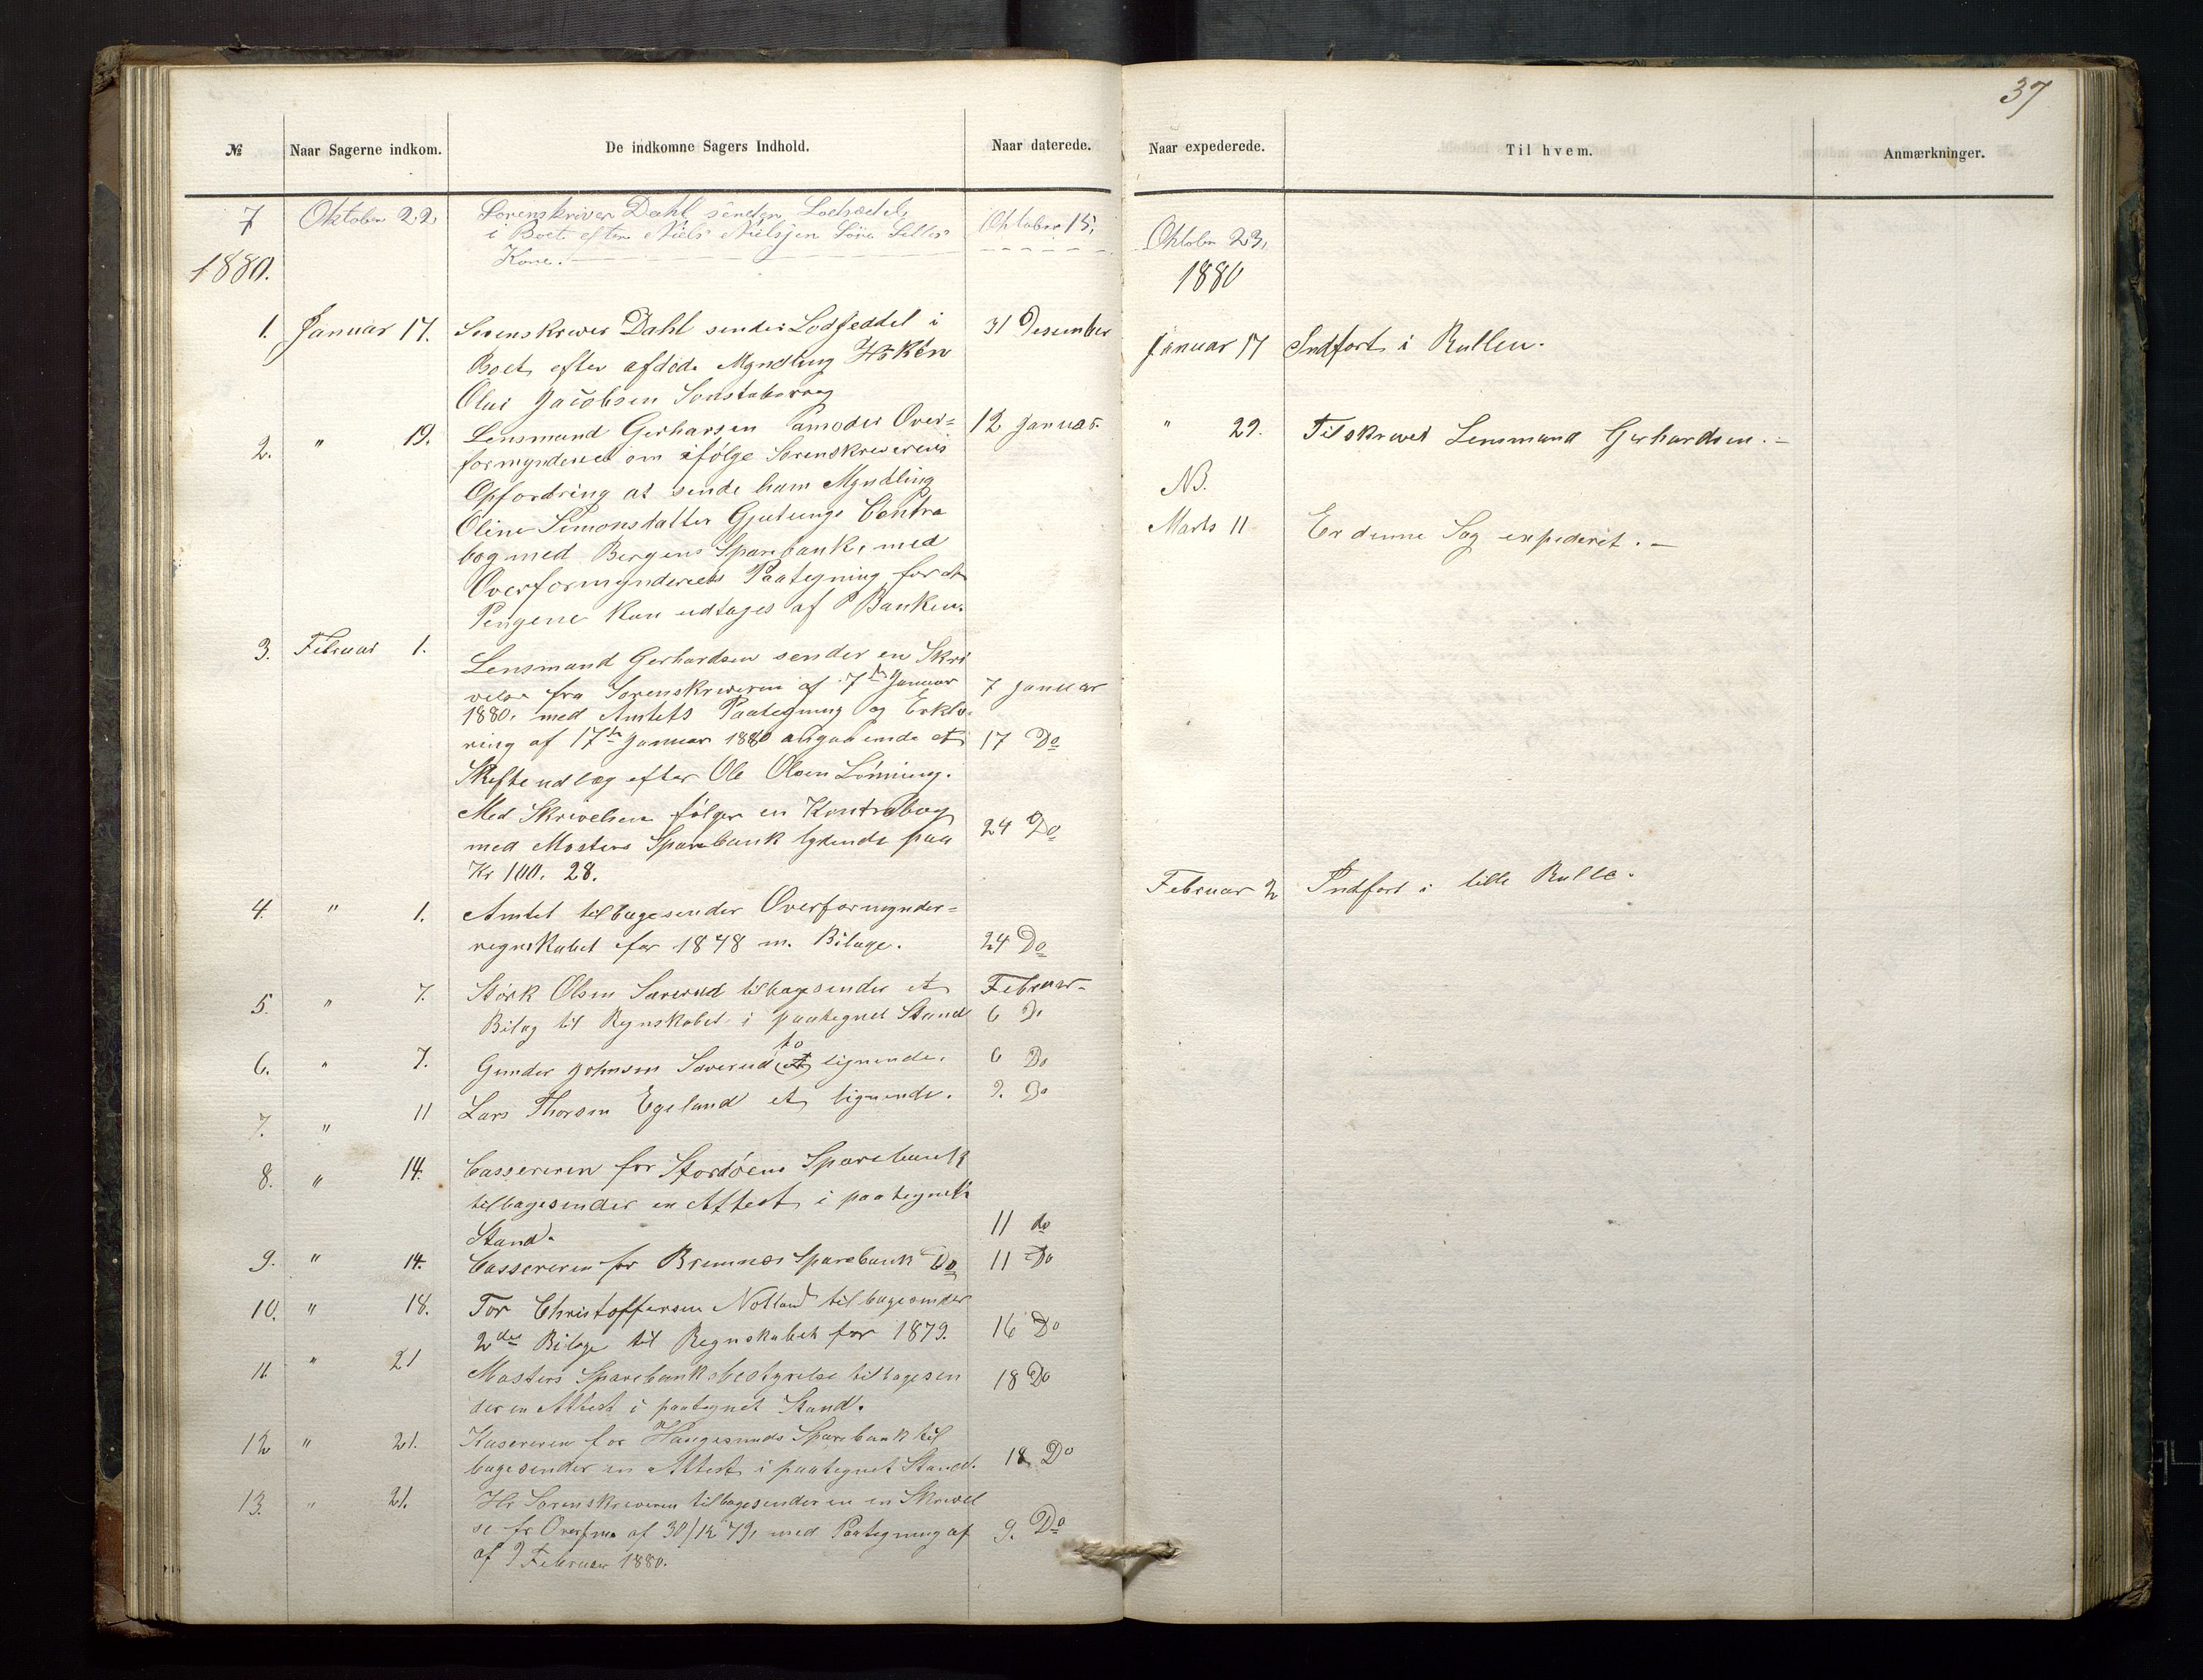 37
№ Naar Sagerne indkom. De indkomne Sagers Indhold. Naar daterede.
Naar expederede. Til hvem. Anmærkninger.
7 Oktober 22 Sorenskriver Dahl sender Lodsedel Oktober 15,
i Boet efter Niels Nielsen
Kone.
Oktober 23,
1880.
1880
1. Januar 17. Sorenskriver Dahl sender Lodseddel i 31 Desember
Boet efter afdøde Myndling Håkon
Olai Jacobsen
Januar 17 Indført i Rullen.
2. " 19. Lensmand Gerharsen anmoder Over= 12 Januar
formynderiet om ifølge Sorenskriverens
Opfordring at sende ham Myndling
Oline Simonsdatter Gjutungs Contra
bog med Bergens Sparebank, med
Overformynderiets Paategning for at
Pengene kan udtages af Banken.
" 29. Tilskrevet Lensmand Gerhardsen. -
NB.
Marts 11 Er denne Sag expederet. -
3. Februar 1. Lensmand Gerhardsen sender en Skri
velse fra Sorenskriveren af 7de Januar 7 Januar
1880. med Amtets Paategning og Erklæ
ring af 17de Januar 1880 angaaende et 17 Do
Skifteudlæg efter Ole Olsen Lönning.
Med Skrivelsen følger en Kontrabog
med Mosters Sparebank lydende paa 24 Do
Kr 100. 28.
Februar 2 Indført i lille Rulle.
4. " 1. Amtet tilbagesender Overformynder=
regnskabet for 1878 m. Bilage. 24 Do
5. " 7. Störk Olsen Sæverud tilbagesender et Februar
Bilag til Regnskabet i paategnet Stand 6 Do
6. " 7. Gunder Johnsen Sæverud to lignende. 6 Do
7. " 11 Lars Thorsen Egeland et lignende. 9. Do
8. " 14. Cassereren for Stordöens Sparebank
tilbagesender en Attest i paategnet
Stand. 11 do
9. " 14. Cassereren for Bremnes Sparebank Do 11 Do
10. " 18. Tor Christoffersen Notland tilbagesender
2de Bilage til Regnskabet for 1879. 16 Do
11. " 21 Mosters Sparebanksbestyrelse tilbagesen 18 Do
der en Attest i paategnet Stand.
12 " 21. Kasereren for Haugesunds Sparebank til
bagesender en Attest i paategnet Stand. 18 Do
13. " 21. Hr Sorenskriveren tilbagesender en en Skrivel
se fr Overfm. af 30/12 79, med Paategning af 9. Do
af 9 Februar 1880.